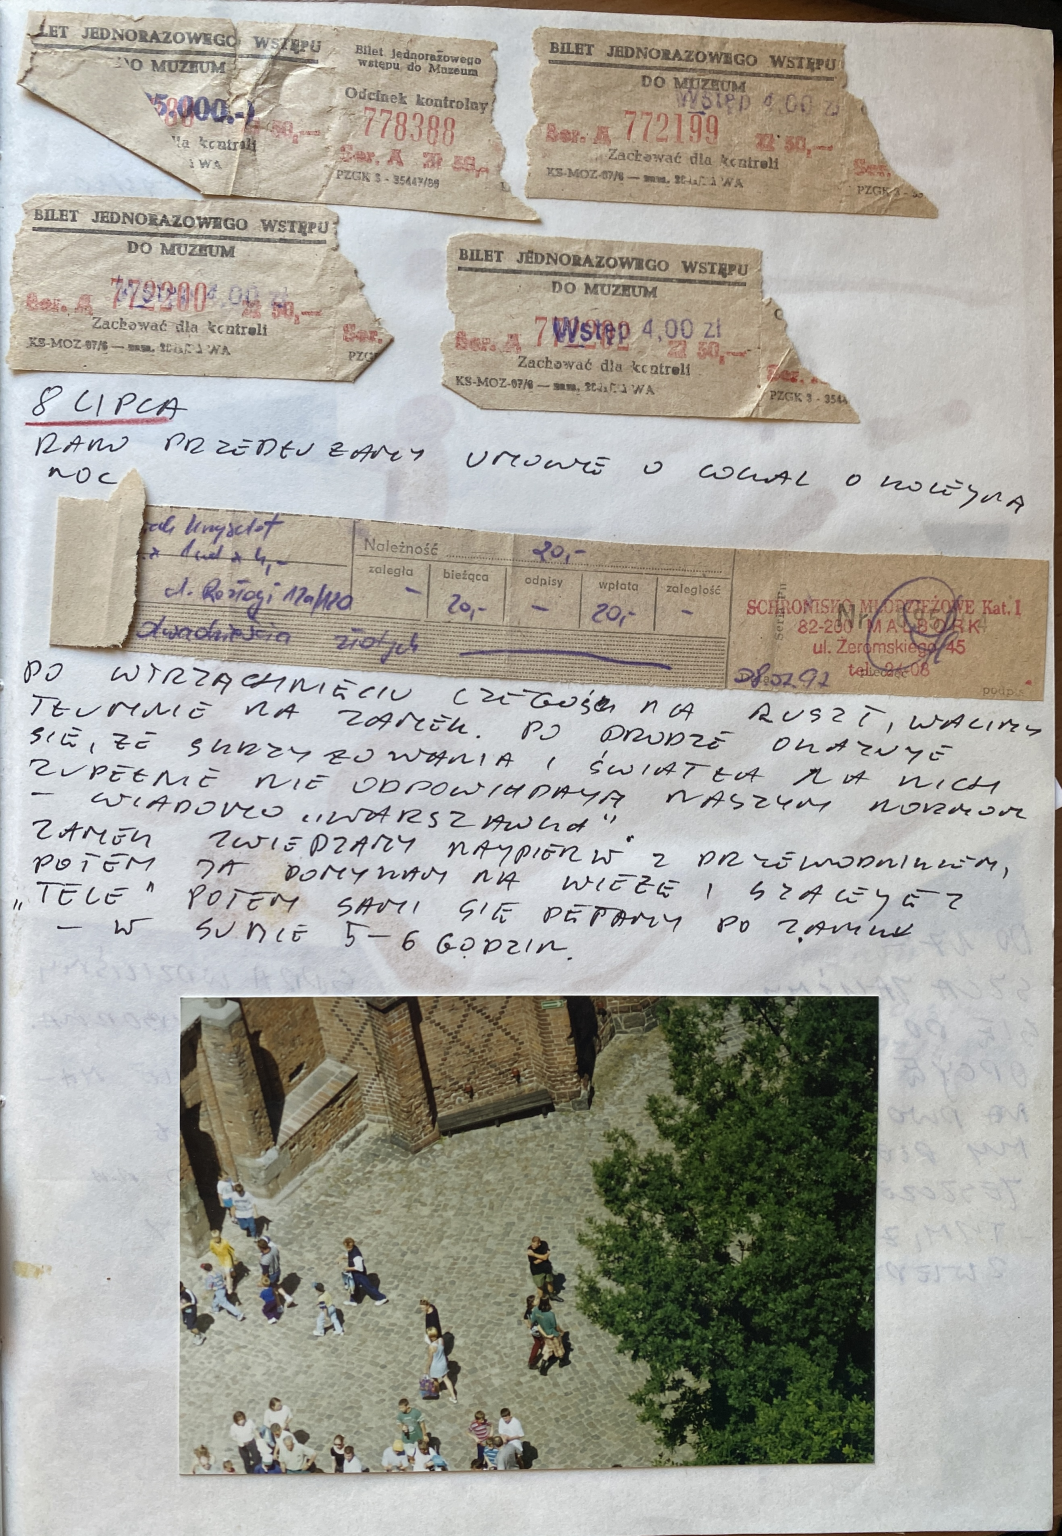 BILET JEDNORAZOWEGO WSTĘPU
DO MUZEUM
5.000.-
Zł 50,—
dla kontroli
Bilet jednorazowego
wstępu do Muzeum
Odcinek kontrolny
778388
Ser. A Zł 50,-
PZGK 3 - 35447/89
BILET JEDNORAZOWEGO WSTĘPU
DO MUZEUM
Wstęp 4,00 zł
Ser. A 772199 Zł 50,—
Zachować dla kontroli
KS-MOZ-07/6
Ser.
PZGK 3
BILET JEDNORAZOWEGO WSTĘPU
DO MUZEUM
Wstęp 4,00 zł
Ser. A 772200 Zł 50,—
Zachować dla kontroli
KS-MOZ-07/6
Ser.
PZG
BILET JEDNORAZOWEGO WSTĘPU
DO MUZEUM
Wstęp 4,00 zł
Ser. A Zł 50,—
Zachować dla kontroli
KS-MOZ-07/6
Ser.
PZGK 3 - 354
8 LIPCA
RANO PRZEDŁUŻAMY UMOWĘ O LOKAL O KOLEJNĄ
NOC
Krzysztof
Należność 20,-
zaległa bieżąca odpisy wpłata zaległość
- 20,- - 20,- -
ul. Rozłogi
dwadzieścia złotych
SCHRONISKO MŁODZIEŻOWE Kat. I
82-200 MALBORK
ul. Żeromskiego 45
podpis
PO WTRZĄCHNIĘCIU CZEGOŚ NA RUSZT, WALIMY
TŁUMNIE NA ZAMEK. PO DRODZE OKAZUJE
SIĘ, ŻE SKRZYŻOWANIA I ŚWIATŁA NA NICH
ZUPEŁNIE NIE ODPOWIADAJĄ NASZYM NORMOM
– WIADOMO „WARSZAWKA".
ZAMEK ZWIEDZAMY NAJPIERW Z PRZEWODNIKIEM,
POTEM JA POMYKAM NA WIEŻĘ I SZALEJĘ Z
„TELE" POTEM SAMI SIĘ PĘTAMY PO ZAMKU
– W SUMIE 5–6 GODZIN.